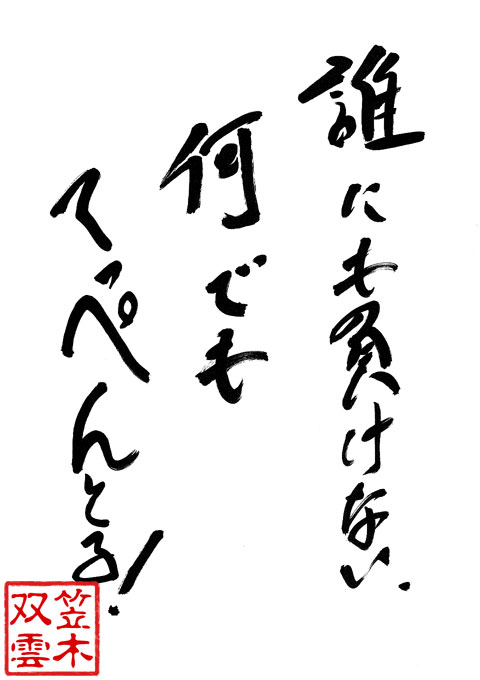 誰にも負けない。
何でも
てっぺんとる！
笠木
双雲